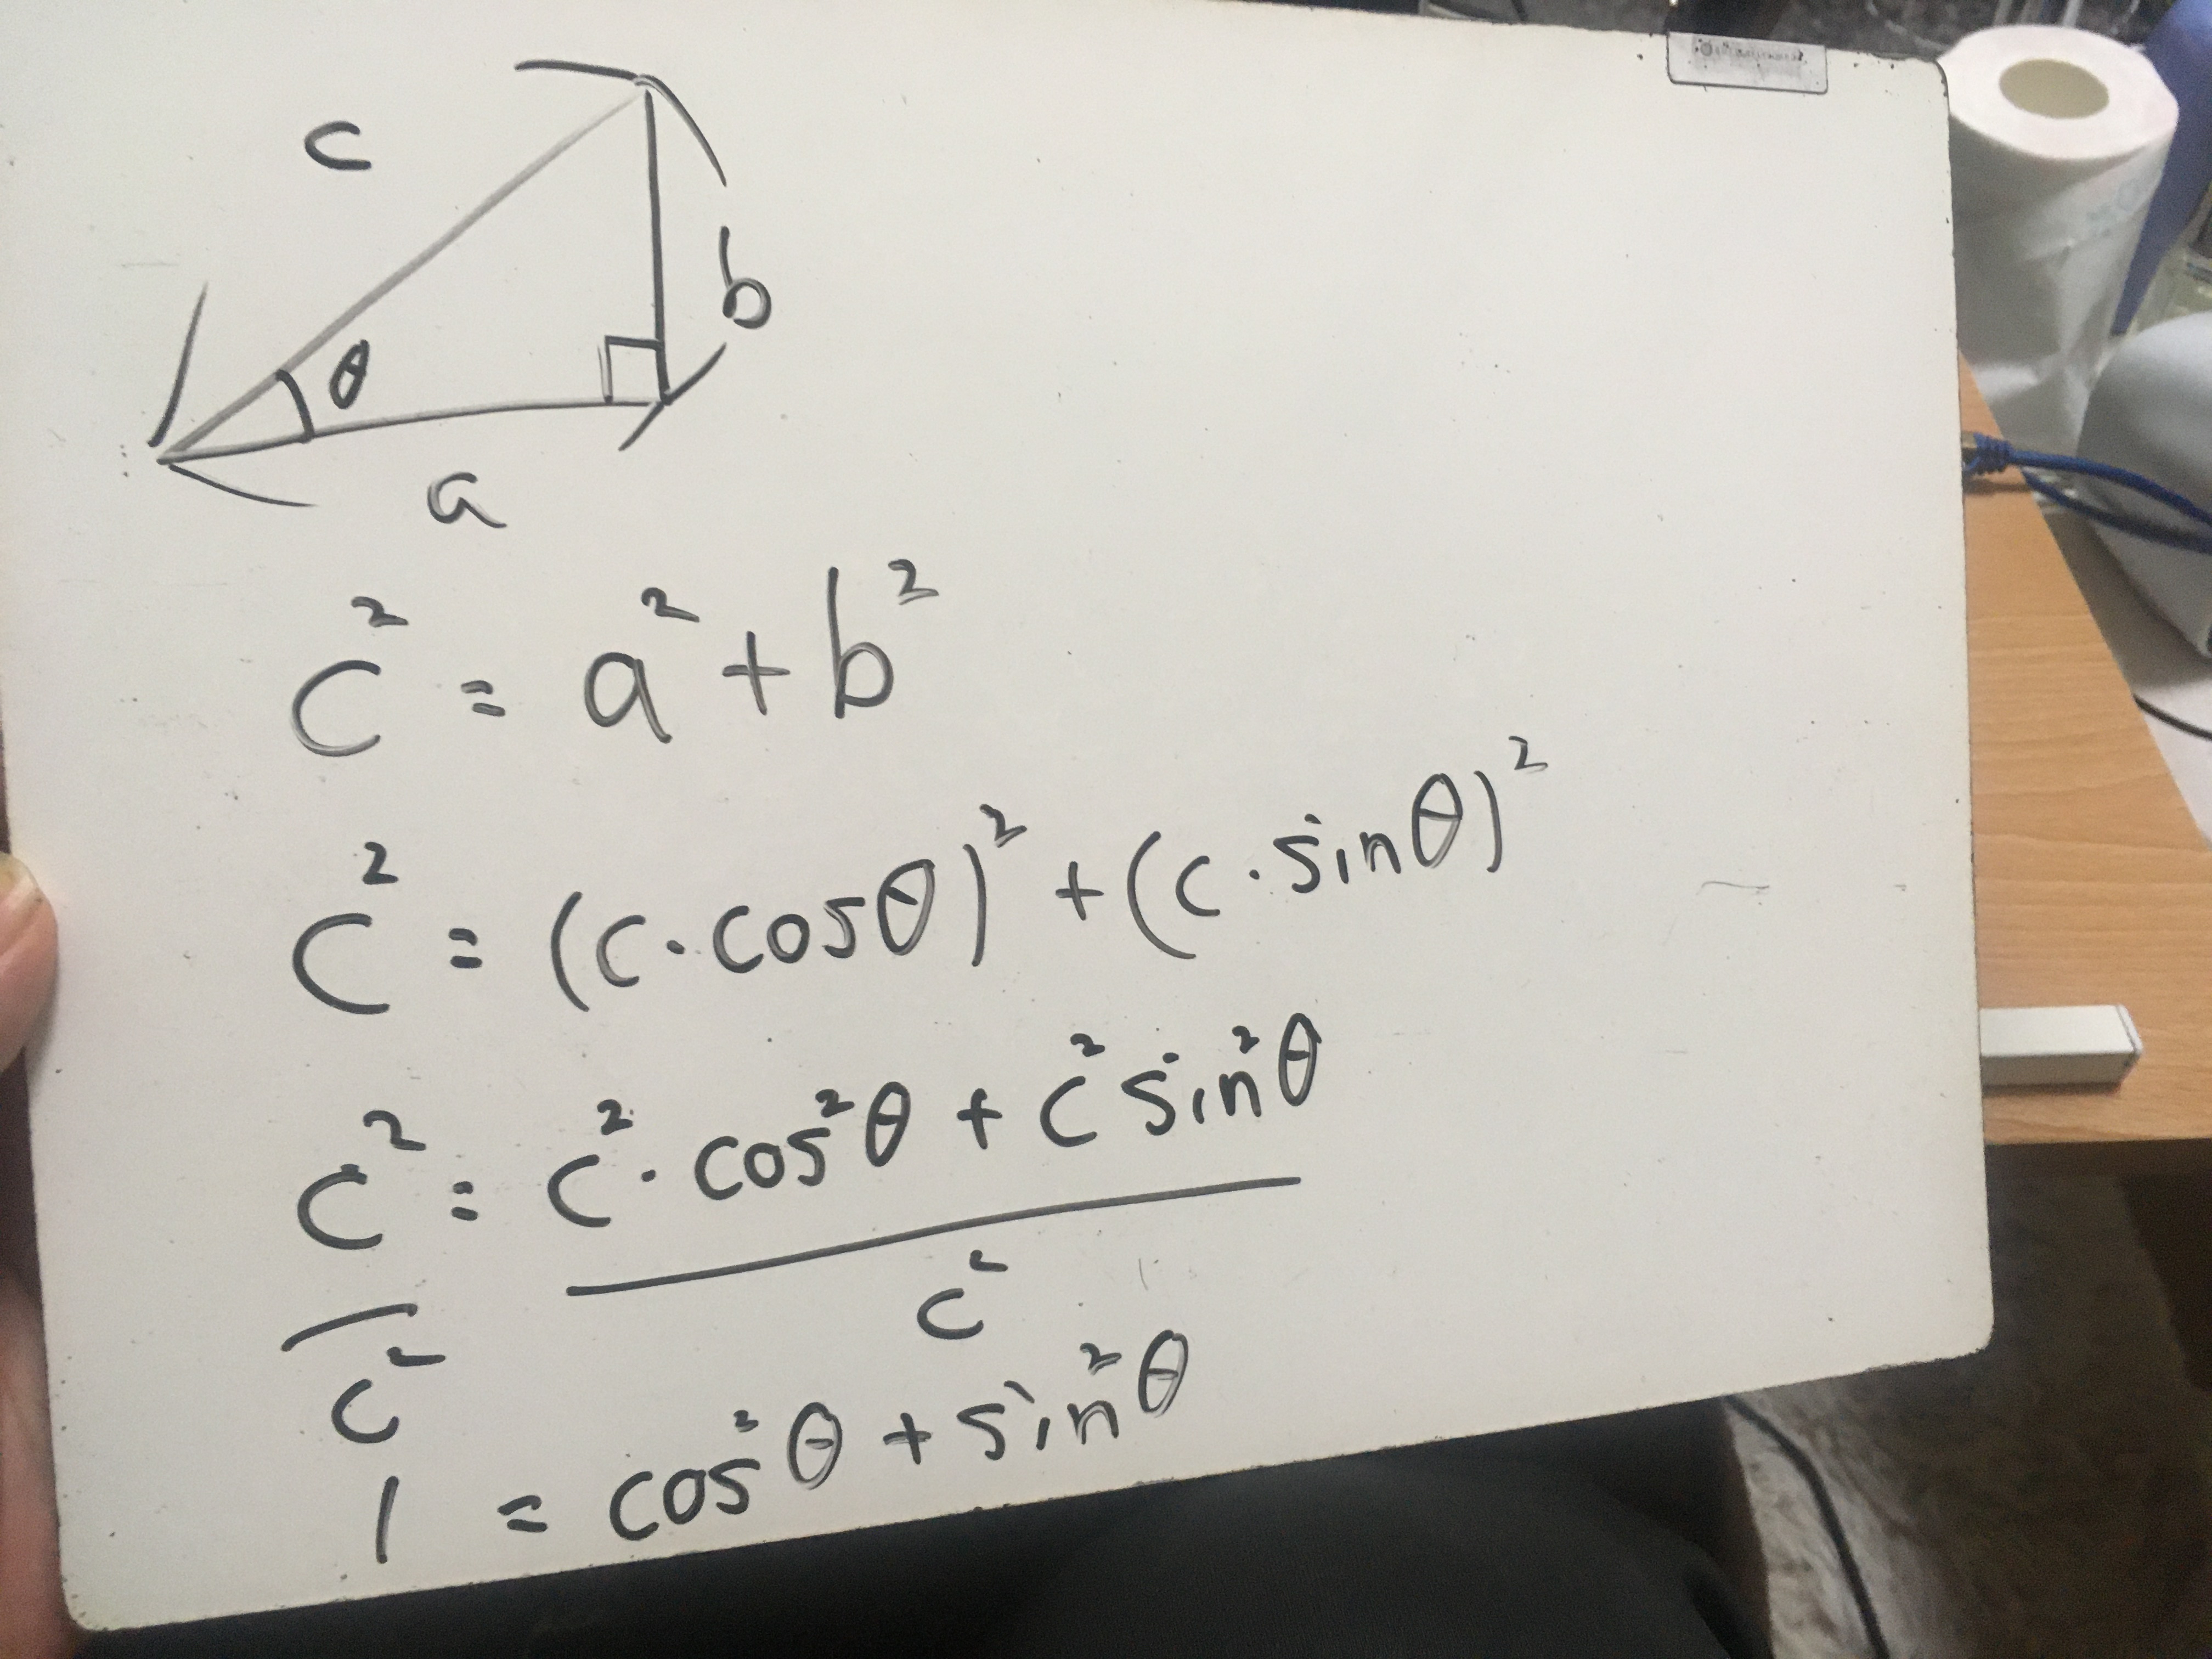 c
θ
b
a
c² = a² + b²
c² = (c·cosθ)² + (c·sinθ)²
c² = c²·cos²θ + c²sin²θ
c² c²
1 = cos²θ + sin²θ